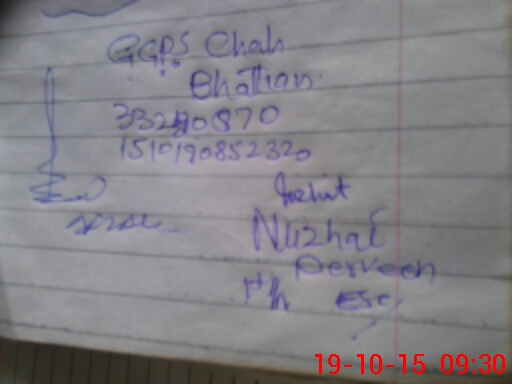 GGPS Chah
Bhattian
33240870
1510190852320
Nuzhat
Perveen
EST
19-10-15 09:30